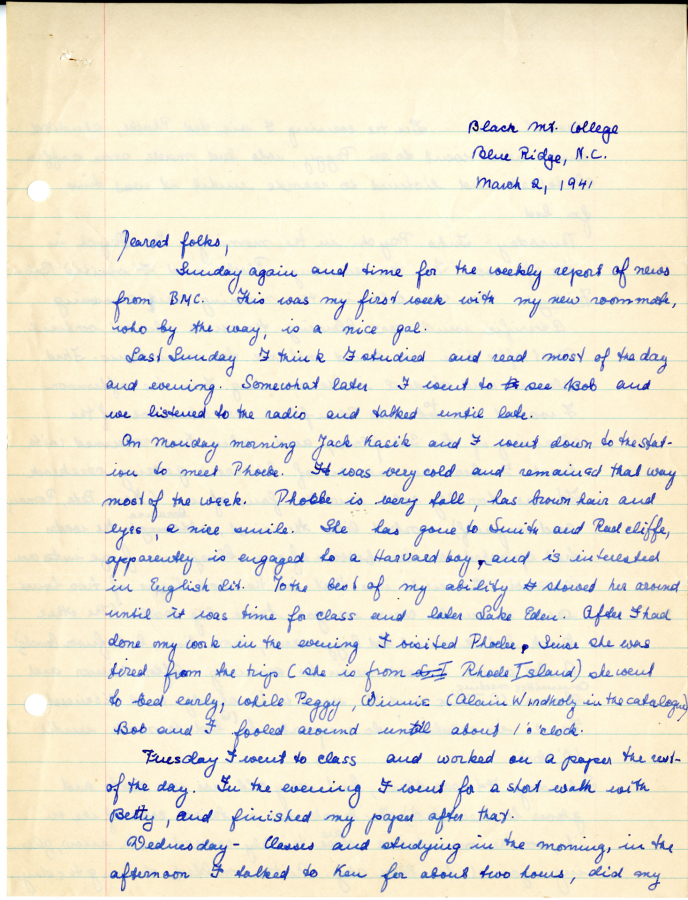 Black Mt. College
Blue Ridge, N.C.
March 2, 1941
Dearest folks,
Sunday again and time for the weekly report of news
from BMC. This was my first week with my new roommate,
who by the way, is a nice gal.
Last Sunday I think I studied and read most of the day
and evening. Somewhat later I went to see Bob and
we listened to the radio and talked until late.
On Monday morning Jack Kasik and I went down to the stat-
ion to meet Phoebe. It was very cold and remained that way
most of the week. Phoebe is very tall, has brown hair and
eyes, a nice smile. She has gone to Smith and Radcliffe,
apparently is engaged to a Harvard boy, and is interested
in English Lit. To the best of my ability I showed her around
until it was time for class and later Lake Eden. After I had
done my work in the evening I visited Phoebe. Since she was
tired from the trip (she is from Rhode Island) she went
to bed early, while Peggy, Winnie (Alain Windholz in the catalogue)
Bob and I fooled around until about 1 o'clock.
Tuesday I went to class and worked on a paper the rest
of the day. In the evening I went for a short walk with
Betty, and finished my paper after that.
Wednesday - Classes and studying in the morning, in the
afternoon I talked to Ken for about two hours, did my